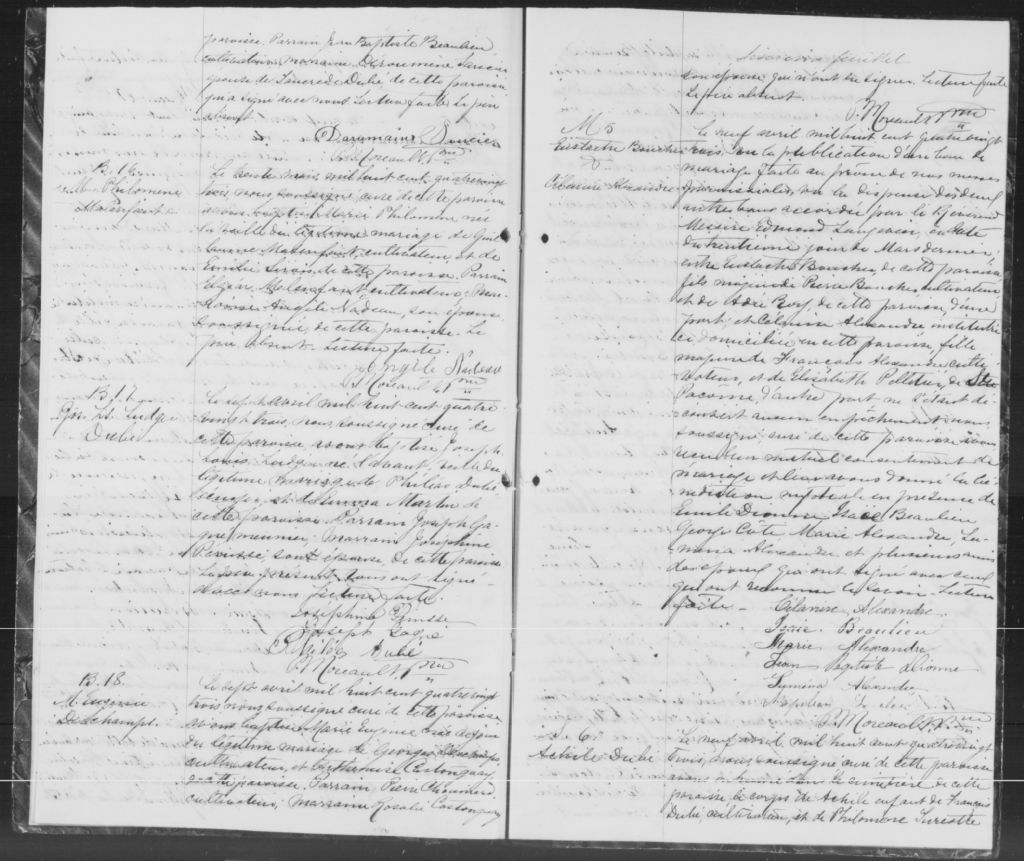 paroisse. Parrain Jean Baptiste Beaulieu
cultivateur, marraine
épouse de Dubé de cette paroisse
qui a signé avec nous Lecture faite Le père
absent
P. Moreault Ptre
B. 16
Philomene
Malenfant
Le mars, mil huit cent quatre vingt
trois, nous soussigné curé de cette paroisse
avons baptisé Marie Philomene née
la veille du légitime mariage de Guil
laume Malenfant, cultivateur et de
Emilie Sirois, de cette paroisse. Parrain
Malenfant cultivateur, mar
raine Angèle Nadeau, son épouse
soussignée, de cette paroisse. Le
père absent. Lecture faite.
Angèle Nadeau
P. Moreault Ptre
B. 17
Jos. Ls. Ludger
Dubé
Le sept avril mil huit cent quatre
vingt trois, nous soussigné curé de
cette paroisse avons baptisé Joseph
Louis Ludger né l'avant veille du
légitime mariage de Philéas Dubé
et de Martin de
cette paroisse. Parrain Joseph Ga
gné marraine Josephine
Perusse, son épouse, de cette paroisse
Le père présent tous ont signé
avec nous Lecture faite
Josephine Perusse
Joseph Gagné
Dubé
P. Moreault Ptre
B. 18.
M. Eugenie
Deschamps.
Le sept avril mil huit cent quatre vingt
trois, nous soussigné curé de cette paroisse
avons baptisé Marie Eugenie née ce jour
du légitime mariage de Georges Deschamps
cultivateur, et Castonguay
de cette paroisse. Parrain, Pierre Chouinard
cultivateur, marraine Rosalie Castonguay
feuillet
son épouse, qui n'ont su signer. Lecture faite
Le père absent.
P. Moreault Ptre
M 5
Eustache Boucher
&
Alexandre
Le neuf avril mil huit cent quatre vingt
trois, vu la publication d'un banc de
mariage faite au prone de nos messes
paroissiales, vu la dispense des deux
autres bans accordée par le Révérend
Messire Edmond Langevin, en date
du trentième jour de Mars dernier,
entre Eustache Boucher, de cette paroisse
fils majeur de Pierre Boucher cultivateur
et de Roy, de cette paroisse, d'une
part; et Célanire Alexandre institutrice
domiciliée en cette paroisse, fille
majeure de François Alexandre culti
vateur, et de Elizabeth Pelletier, de St
Pacome, d'autre part ne s'étant dé
couvert aucun empêchement, nous
soussigné, curé de cette paroisse avons
reçu leur mutuel consentement de
mariage et leur avons donné la bé
nédiction nuptiale en présence de
Emile Dionne, Isaïe Beaulieu
George Côté, Marie Alexandre, Lu
mina Alexandre et plusieurs amis
des époux qui ont signé avec ceux
qui ont reconnu le savoir. Lecture
faite
Célanire Alexandre
Isaïe Beaulieu
Marie Alexandre
Jean Baptiste Dionne
Lumina Alexandre
P. Moreault Ptre
S. 6
Achile Dubé
Le neuf avril, mil huit cent quatre vingt
trois, nous soussigné curé de cette paroisse
avons inhumé dans le cimetière de cette
paroisse le corps de Achile enfant de François
Dubé, cultivateur, et de Philomène